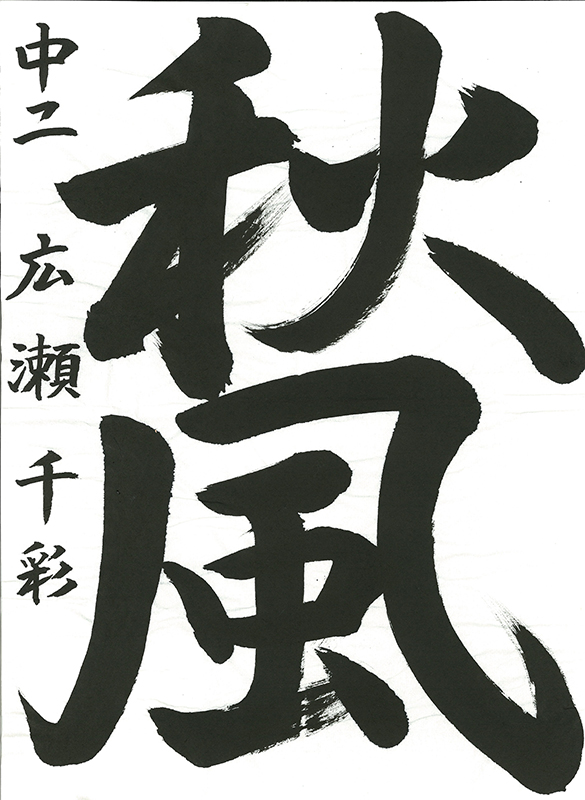 秋風
中二 広瀬千彩